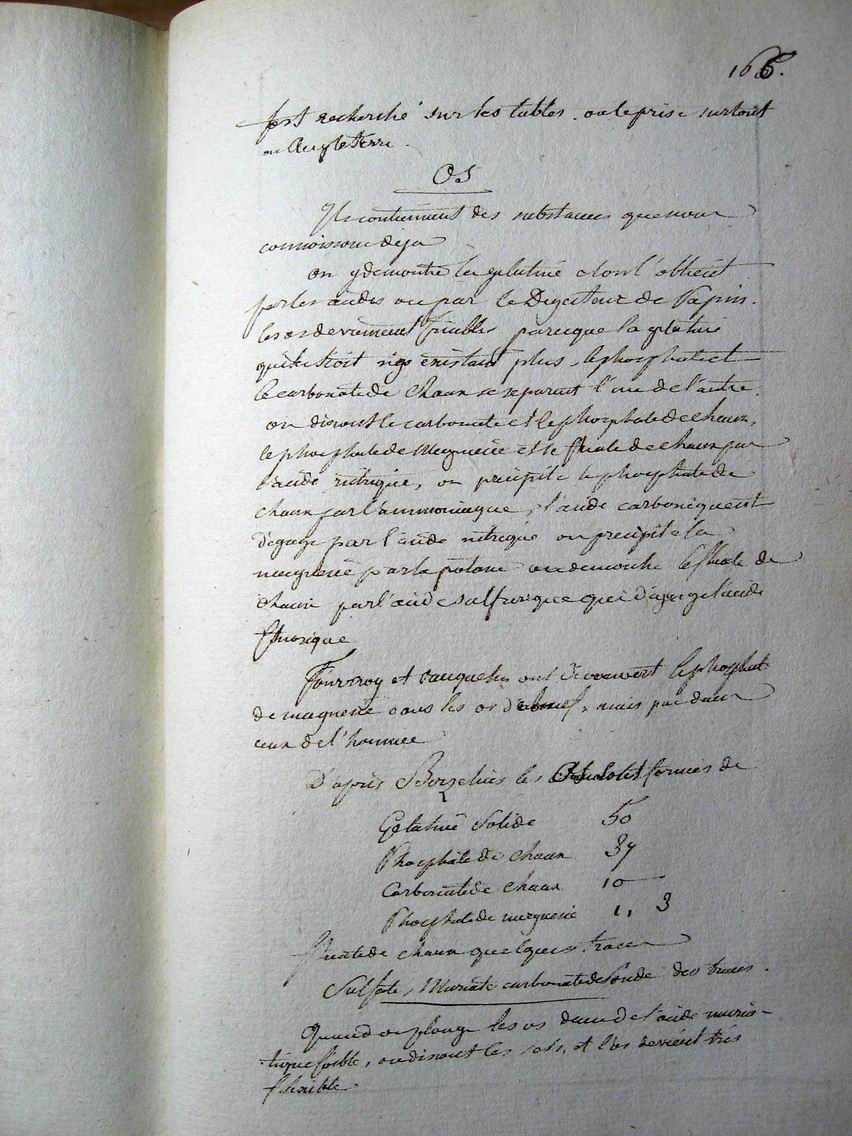 166.
fort recherché sur les tables. on le prise surtout
en Angleterre.
OS
Ils contiennent des substances que nous
connoissons deja
on y demontre la gelatine dont l'obtient
par les acides ou par le Digesteur de Papin.
les os deviennent friables parceque la gelatine
n'existant plus, le phosphate et
le carbonate de chaux se separent l'une de l'autre.
on dissout le carbonate et le phosphate de chaux,
le phosphate de Magnesie et le fluate de chaux par
l'acide nitrique, on precipite le phosphate de
chaux par l'ammoniaque, l'acide carbonique est
degagé par l'acide nitrique on precipite la
magnesie par la potasse on demontre le fluate de
chaux par l'acide sulfurique qui degage l'acide
fluorique
Fourcroy et vauquelin ont decouvert le phosphate
de magnesie dans les os de boeuf, mais pas dans
ceux de l'homme
D'après Berzelius les Os sont formés de
Gelatine Solide 50
Phosphate de chaux 37
Carbonate de chaux 10
Phosphate de magnesie 1, 3
fluate de chaux quelques traces
Sulfate, Muriate carbonate de Soude des traces.
Quand on plonge les os dans de l'acide muria-
tique foible, on dissout les sels, et l'os devient très
flexible.